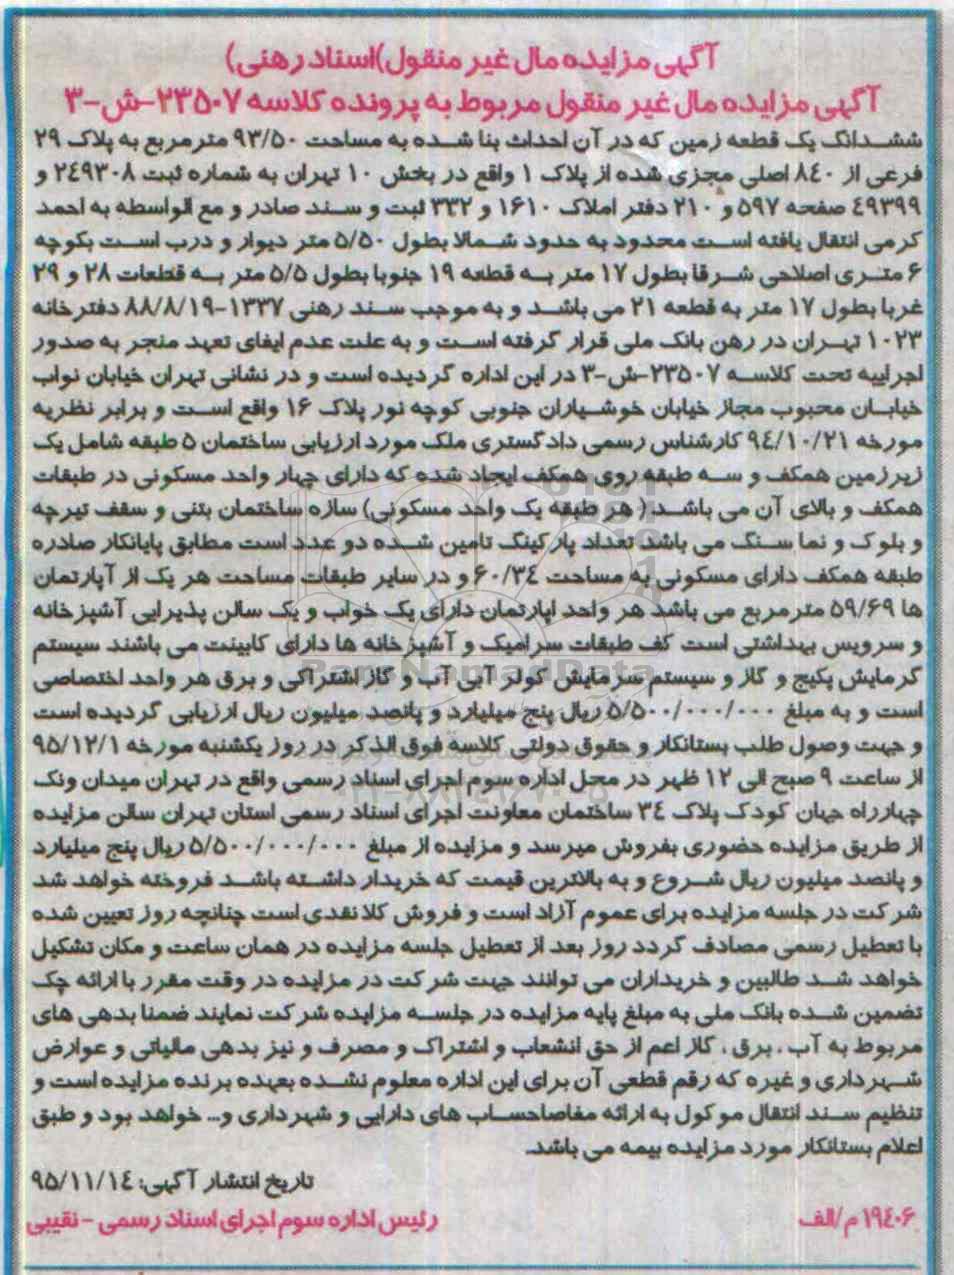 آگهی مزایده مال غیر منقول)اسناد رهنی)
آگهی مزایده مال غیر منقول مربوط به پرونده کلاسه ۲۳۵۰۷-ش-۳
ششدانگ یک قطعه زمین که در آن احداث بنا شده به مساحت ۹۳/۵۰ مترمربع به پلاک ۲۹
فرعی از ۸۴۰ اصلی مجزی شده از پلاک ۱ واقع در بخش ۱۰ تهران به شماره ثبت ۲۴۹۳۰۸ و
۴۹۳۹۹ صفحه ۵۹۷ و ۲۱۰ دفتر املاک ۱۶۱۰ و ۳۳۲ ثبت و سند صادر و مع الواسطه به احمد
کرمی انتقال یافته است محدود به حدود شمالا بطول ۵/۵۰ متر دیوار و درب است بکوچه
۶ متری اصلاحی شرقا بطول ۱۷ متر به قطعه ۱۹ جنوبا بطول ۵/۵ متر به قطعات ۲۸ و ۲۹
غربا بطول ۱۷ متر به قطعه ۲۱ می باشد و به موجب سند رهنی ۱۳۳۷-۸۸/۸/۱۹ دفترخانه
۱۰۲۳ تهران در رهن بانک ملی قرار گرفته است و به علت عدم ایفای تعهد منجر به صدور
اجراییه تحت کلاسه ۲۳۵۰۷-ش-۳ در این اداره گردیده است و در نشانی تهران خیابان نواب
خیابان محبوب مجاز خیابان خوشیاران جنوبی کوچه نور پلاک ۱۶ واقع است و برابر نظریه
مورخه ۹۴/۱۰/۲۱ کارشناس رسمی دادگستری ملک مورد ارزیابی ساختمان ۵ طبقه شامل یک
زیرزمین همکف و سه طبقه روی همکف ایجاد شده که دارای چهار واحد مسکونی در طبقات
همکف و بالای آن می باشد.( هر طبقه یک واحد مسکونی) سازه ساختمان بتنی و سقف تیرچه
و بلوک و نما سنگ می باشد تعداد پارکینگ تامین شده دو عدد است مطابق پایانکار صادره
طبقه همکف دارای مسکونی به مساحت ۶۰/۳۴ و در سایر طبقات مساحت هر یک از آپارتمان
ها ۵۹/۶۹ مترمربع می باشد هر واحد اپارتمان دارای یک خواب و یک سالن پذیرایی آشپزخانه
و سرویس بهداشتی است کف طبقات سرامیک و آشپزخانه ها دارای کابینت می باشند سیستم
گرمایش پکیج و گاز و سیستم سرمایش کولر آبی آب و گاز اشتراکی و برق هر واحد اختصاصی
است و به مبلغ ۵/۵۰۰/۰۰۰/۰۰۰ ریال پنج میلیارد و پانصد میلیون ریال ارزیابی گردیده است
و جهت وصول طلب بستانکار و حقوق دولتی کلاسه فوق الذکر در روز یکشنبه مورخه ۹۵/۱۲/۱
از ساعت ۹ صبح الی ۱۲ ظهر در محل اداره سوم اجرای اسناد رسمی واقع در تهران میدان ونک
چهارراه جهان کودک پلاک ۳۴ ساختمان معاونت اجرای اسناد رسمی استان تهران سالن مزایده
از طریق مزایده حضوری بفروش میرسد و مزایده از مبلغ ۵/۵۰۰/۰۰۰/۰۰۰ ریال پنج میلیارد
و پانصد میلیون ریال شروع و به بالاترین قیمت که خریدار داشته باشد فروخته خواهد شد
شرکت در جلسه مزایده برای عموم آزاد است و فروش کلا نقدی است چنانچه روز تعیین شده
با تعطیل رسمی مصادف گردد روز بعد از تعطیل جلسه مزایده در همان ساعت و مکان تشکیل
خواهد شد طالبین و خریداران می توانند جهت شرکت در مزایده در وقت مقرر با ارائه چک
تضمین شده بانک ملی به مبلغ پایه مزایده در جلسه مزایده شرکت نمایند ضمنا بدهی های
مربوط به آب ، برق ، گاز اعم از حق انشعاب و اشتراک و مصرف و نیز بدهی مالیاتی و عوارض
شهرداری و غیره که رقم قطعی آن برای این اداره معلوم نشده بعهده برنده مزایده است و
تنظیم سند انتقال موکول به ارائه مفاصاحساب های دارایی و شهرداری و... خواهد بود و طبق
اعلام بستانکار مورد مزایده بیمه می باشد.
تاریخ انتشار آگهی: ۹۵/۱۱/۱۴
۱۹۴۰۶ م/الف
رئیس اداره سوم اجرای اسناد رسمی - نقیبی
ParsNamadData